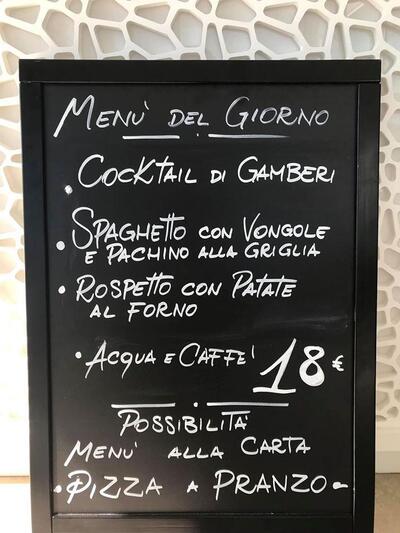 MENÙ DEL GIORNO
• COCKTAIL DI GAMBERI
• SPAGHETTO CON VONGOLE
E PACHINO ALLA GRIGLIA
• ROSPETTO CON PATATE
AL FORNO
• ACQUA E CAFFE' 18€
POSSIBILITÀ
MENÙ ALLA CARTA
• PIZZA A PRANZO •